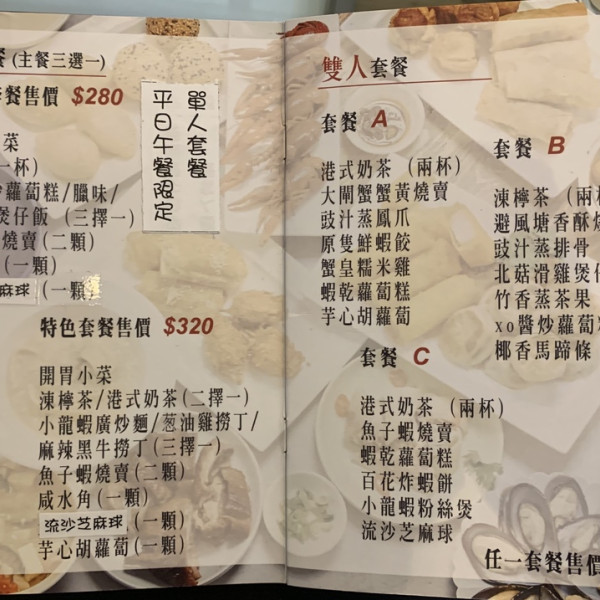 餐 (主餐三選一)
套餐售價 $280
菜
一杯)
蘿蔔糕/臘味/
煲仔飯 (三擇一)
燒賣(二顆)
(一顆)
麻球 (一顆)
單人套餐
平日午餐限定
特色套餐售價 $320
開胃小菜
涷檸茶/港式奶茶(二擇一)
小龍蝦廣炒麵/葱油雞撈丁/
麻辣黑牛撈丁(三擇一)
魚子蝦燒賣(二顆)
咸水角(一顆)
流沙芝麻球 (一顆)
芋心胡蘿蔔(一顆)
雙人套餐
套餐 A
港式奶茶 (兩杯)
大閘蟹蟹黃燒賣
豉汁蒸鳳爪
原隻鮮蝦餃
蟹皇糯米雞
蝦乾蘿蔔糕
芋心胡蘿蔔
套餐 B
涷檸茶 (兩
避風塘香酥
豉汁蒸排骨
北菇滑雞煲仔
竹香蒸茶果
xo醬炒蘿蔔
椰香馬蹄條
套餐 C
港式奶茶 (兩杯)
魚子蝦燒賣
蝦乾蘿蔔糕
百花炸蝦餅
小龍蝦粉絲煲
流沙芝麻球
任一套餐售價